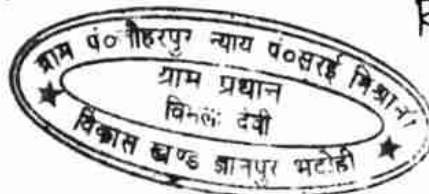 ग्राम पं० गौहरपुर न्याय पं०सरई मिश्रानी
ग्राम प्रधान
विमला देवी
विकास खण्ड ज्ञानपुर भदोही